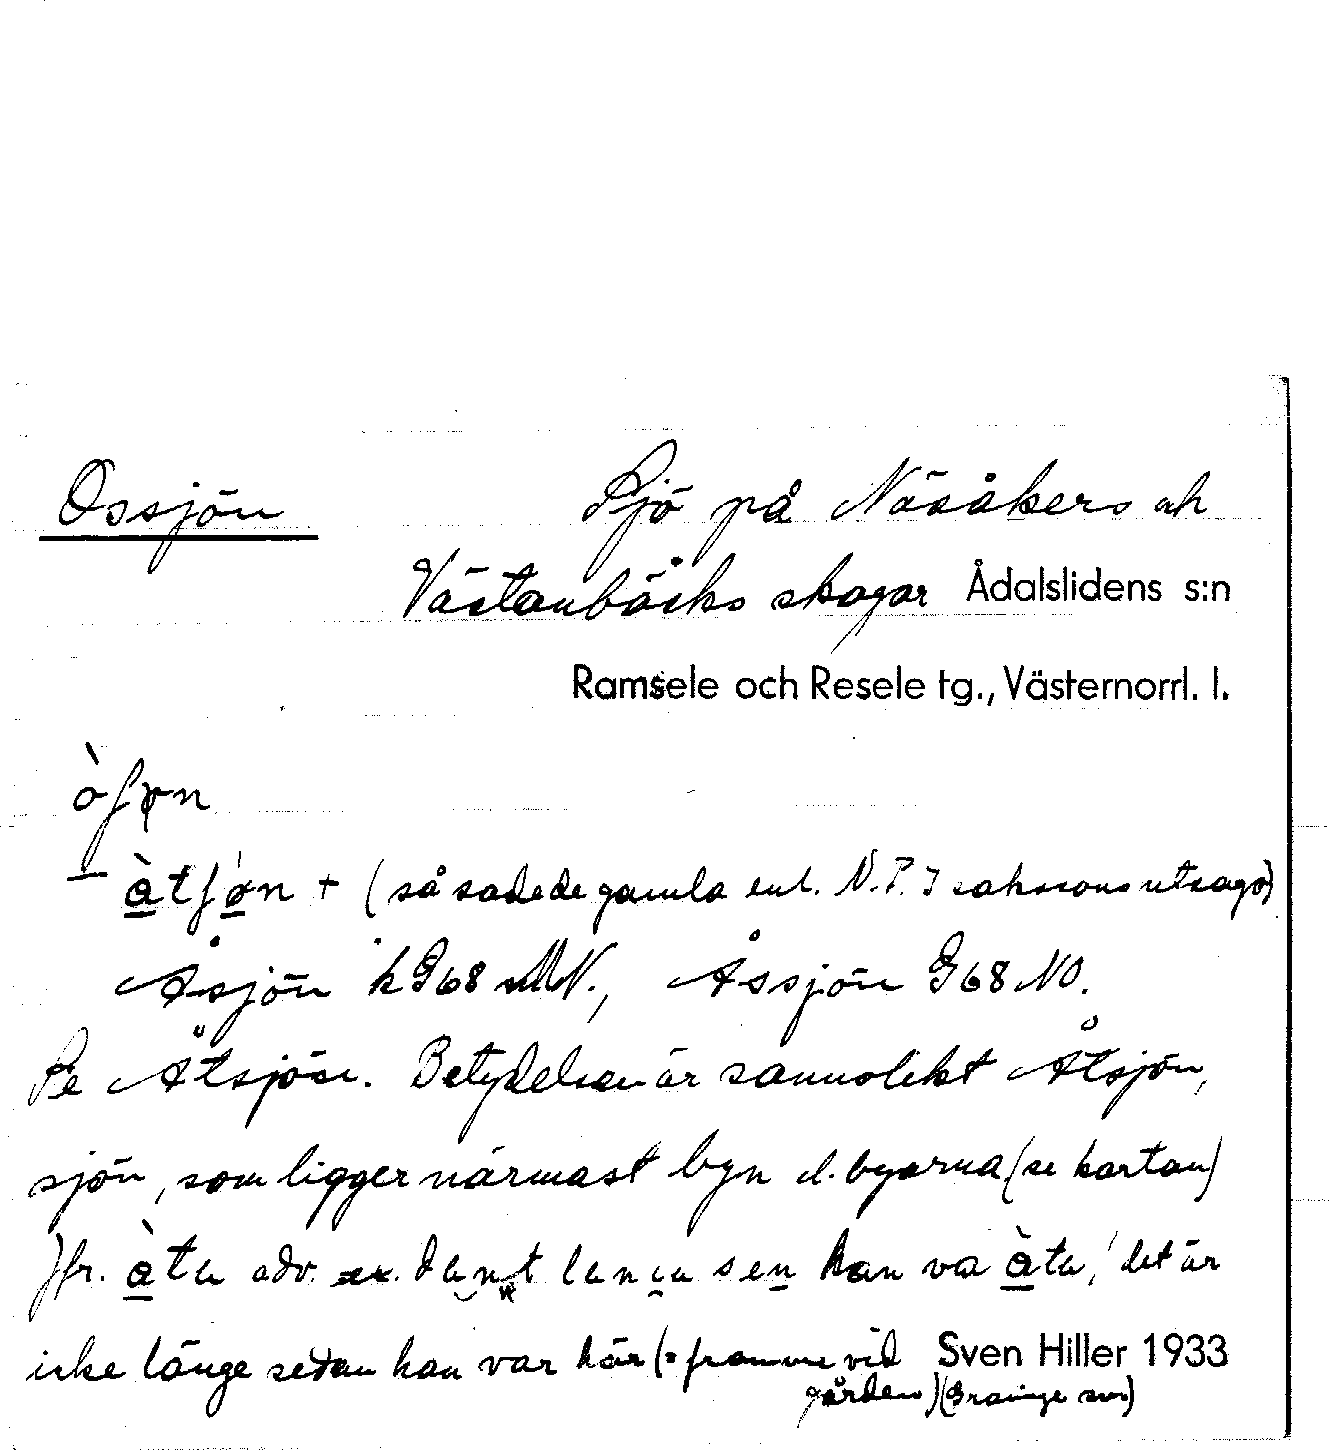 Ossjön
Sjö på Näsåkers och
Västanbäcks skogar Ådalslidens s:n
Ramsele och Resele tg., Västernorrl. l.
òʃøn
àtʃǿn + (så sade de gamla enl. N.P. Isakssons utsago)
Åsjön k G68 N., Åssjön G68 NO.
Se Åtsjön. Betydelsen är sannolikt Åtsjön,
sjön, som ligger närmast byn el. byarna (se kartan)
Jfr. àta adv. ex. sen han va àta, det är
icke länge sedan han var här (= framme vid Sven Hiller 1933
gården) (Graninge sn)